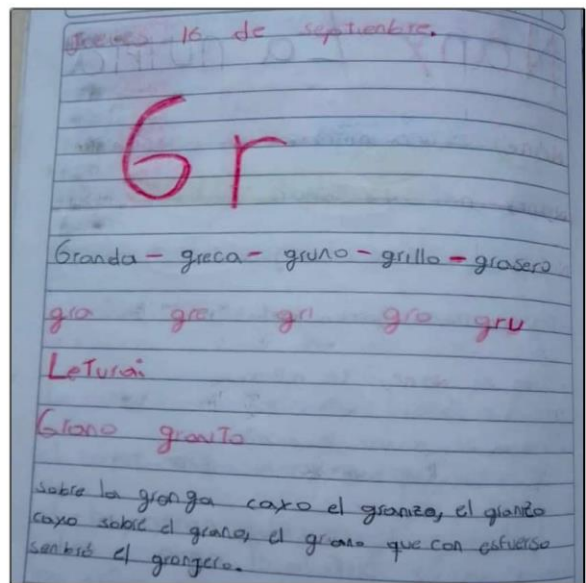 Jueves 16 de septienbre.
Gr
Granda - greca - gruno - grillo - grosero
gra gre gri gro gru
Leturai
Grano granito
sobre la gronga cayo el granizo, el granizo
cayo sobre el grano, el grano que con esfuerso
senbró el grongero.